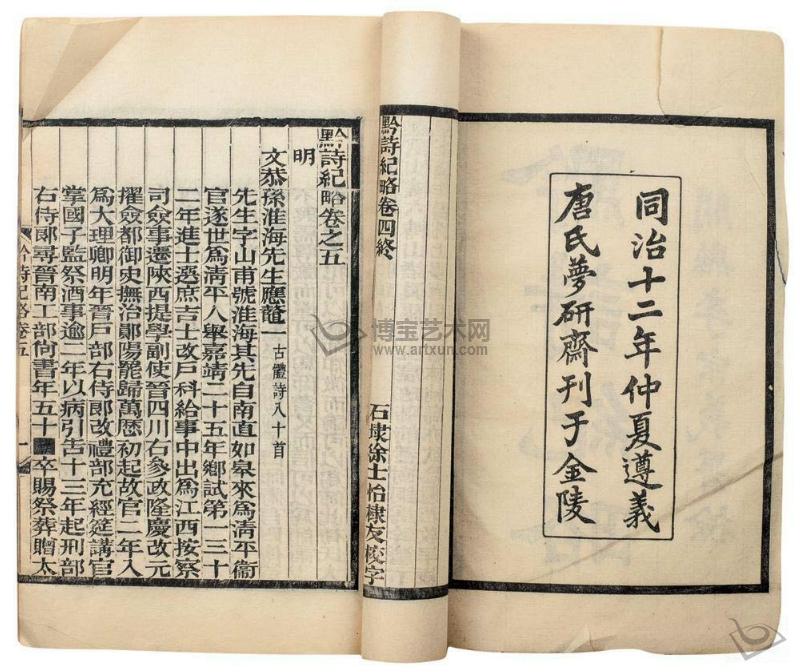 同治十二年仲夏遵義
唐氏夢研齋刊于金陵
黔詩紀略卷四終
石埭徐士怡棣友校字
黔詩紀略卷之五
明
文恭孫淮海先生應鼇一 古體詩八十首
先生字山甫號淮海其先自南直如皋來爲淸平衞
官遂世爲淸平人舉嘉靖二十五年鄕試第一三十
二年進士選庶吉士改戶科給事中出爲江西按察
司僉事遷陝西提學副使晉四川右參政隆慶改元
擢僉都御史撫治鄖陽罷歸萬歷初起故官二年入
爲大理卿明年晉戶部右侍郞改禮部充經筵講官
掌國子監祭酒事逾二年以病引告十三年起刑部
右侍郞尋晉南工部尙書年五十 卒賜祭葬贈太
黔詩紀略卷五
一
博宝艺术网
www.artxun.com